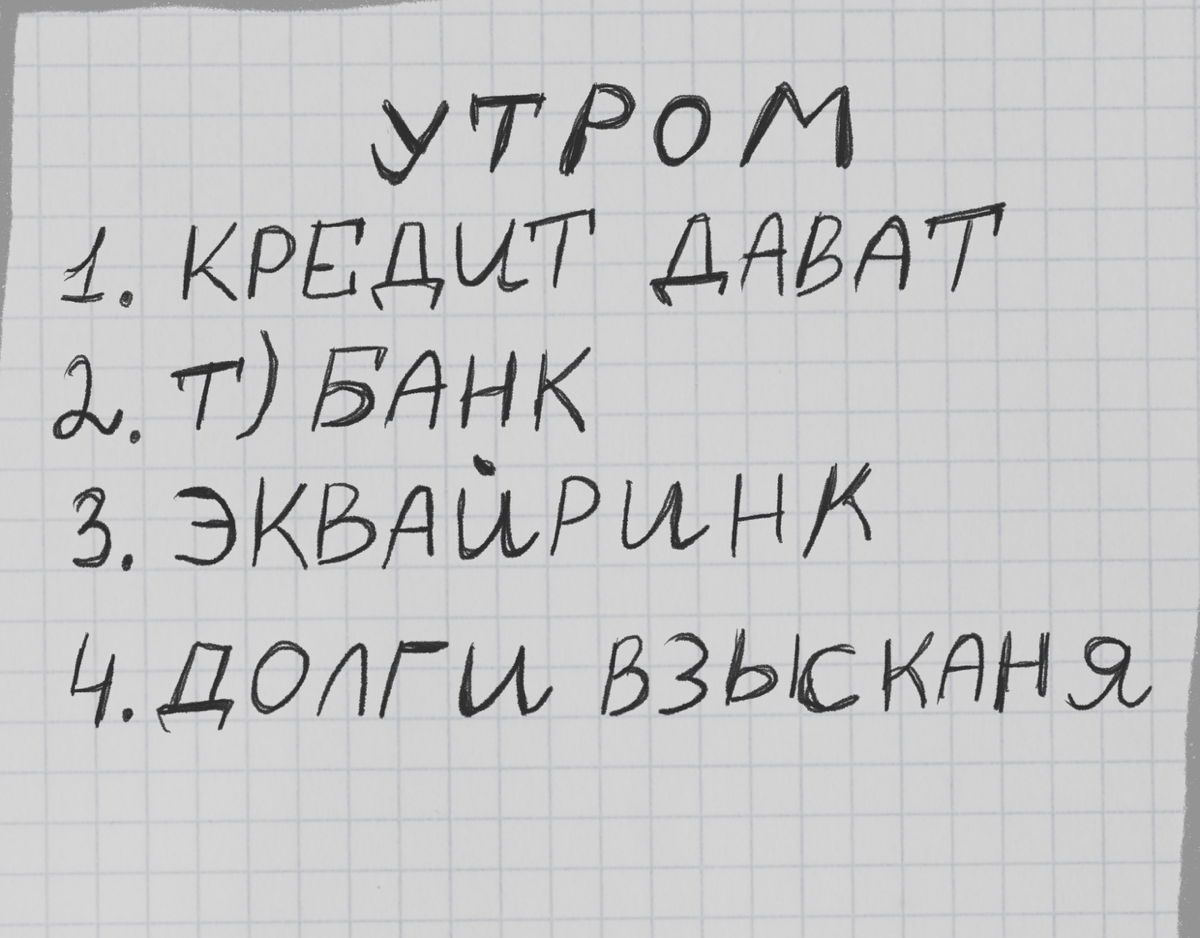 УТРОМ
1. КРЕДИТ ДАВАТ
2. Т) БАНК
3. ЭКВАЙРИНК
4. ДОЛГИ ВЗЫСКАНЯ